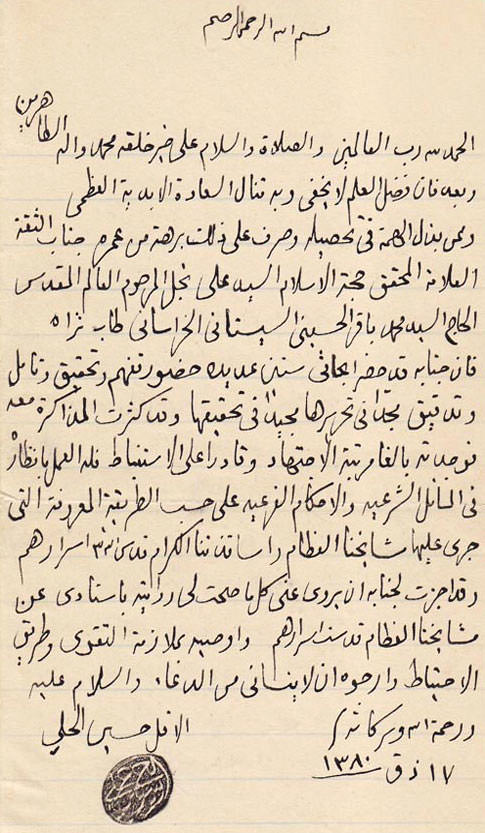 بسم الله الرحمن الرحيم
الحمد لله رب العالمين والصلاة والسلام على خير خلقه محمد واله الطاهرين
وبعد فان فضل العلم لا يخفى وبه تنال السعادة الابدية العظمى
وممن بذل الهمة في تحصيله وصرف على ذلك برهة من عمره جناب الثقة
العلامة المحقق حجة الاسلام السيد علي نجل المرحوم العالم المقدس
الحاج السيد محمد باقر الحسيني السيستاني الخراساني طاب ثراه
فان جنابه قد حضر ابحاثي سنين عديدة حضور تفهم وتحقيق وتأمل
وتدقيق مجدّا في تحريرها مجيدا في تحقيقها وقد كثرت المذاكرة معه
فوجدته بالغا مرتبة الاجتهاد وقادرا على الاستنباط فله العمل بانظاره
في المسائل الشرعيه والاحكام الفرعيه على حسب الطريقة المعروفة التي
جرى عليها مشايخنا العظام واساتذتنا الكرام قدس الله اسرارهم
وقد اجزت لجنابه ان يروي عني كل ما صحت لي روايته باسنادي عن
مشايخنا العظام قدست اسرارهم واوصيه بملازمة التقوى وطريق
الاحتياط وارجوه ان لا ينساني من الدعاء والسلام عليه
ورحمة الله وبركاته
الاقل حسين الحلي
١٧ ذق ١٣٨٠